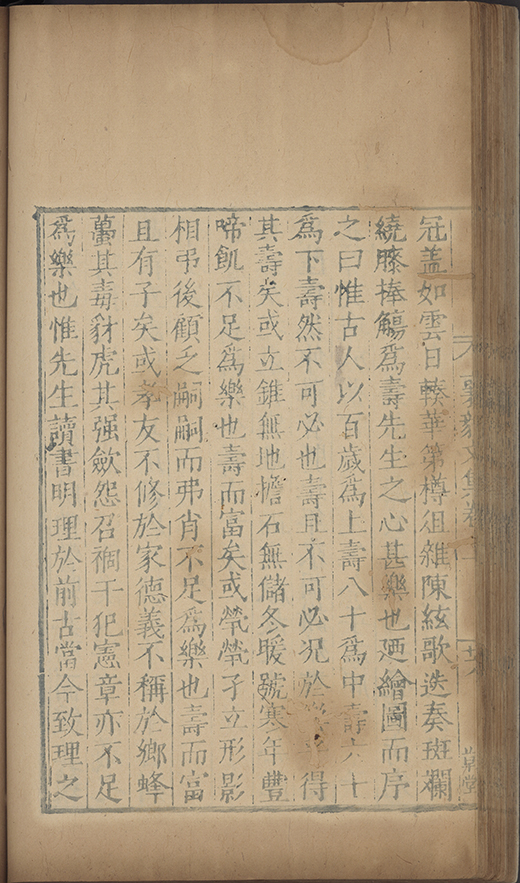 冠盖如雲日轃華第樽俎雜陳絃歌迭奏斑斕
繞膝捧觴爲壽先生之心甚樂也廼繪圖而序
之曰惟古人以百歲爲上壽八十爲中壽六十
爲下壽然不可必也壽且不可必况於得
其壽矣或立錐無地檐石無儲冬暖號寒年豐
啼飢不足爲樂也壽而富矣或煢煢孑立形影
相弔後顧乏嗣嗣而弗肖不足爲樂也壽而富
且有子矣或孝友不修於家德義不稱於鄉蜂
蠆其毒豺虎其强歛怨召禍干犯憲章亦不足
爲樂也惟先生讀書明理於前古當今致理之
文集卷